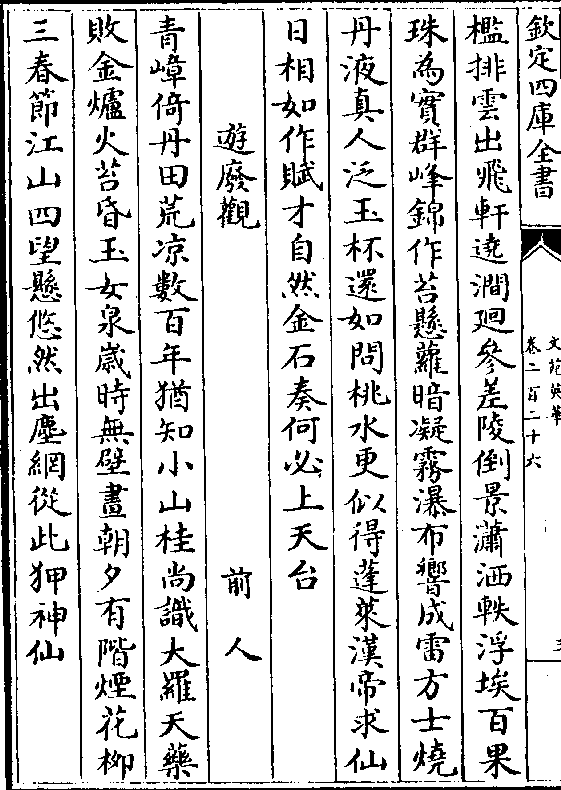 欽定四庫全書
文苑英華
卷二百二十六
三
檻排雲出飛軒遶澗廻參差陵倒景瀟洒軼浮埃百果
珠為實群峰錦作苔懸蘿暗凝霧瀑布響成雷方士燒
丹液真人泛玉杯還如問桃水更似得蓬萊漢帝求仙
日相如作賦才自然金石奏何必上天台
遊廢觀
前人
青嶂倚丹田荒凉數百年猶知小山桂尚識大羅天藥
敗金爐火苔昏玉女泉歲時無壁畫朝夕有階煙花柳
三春節江山四望懸悠然出塵網從此狎神仙